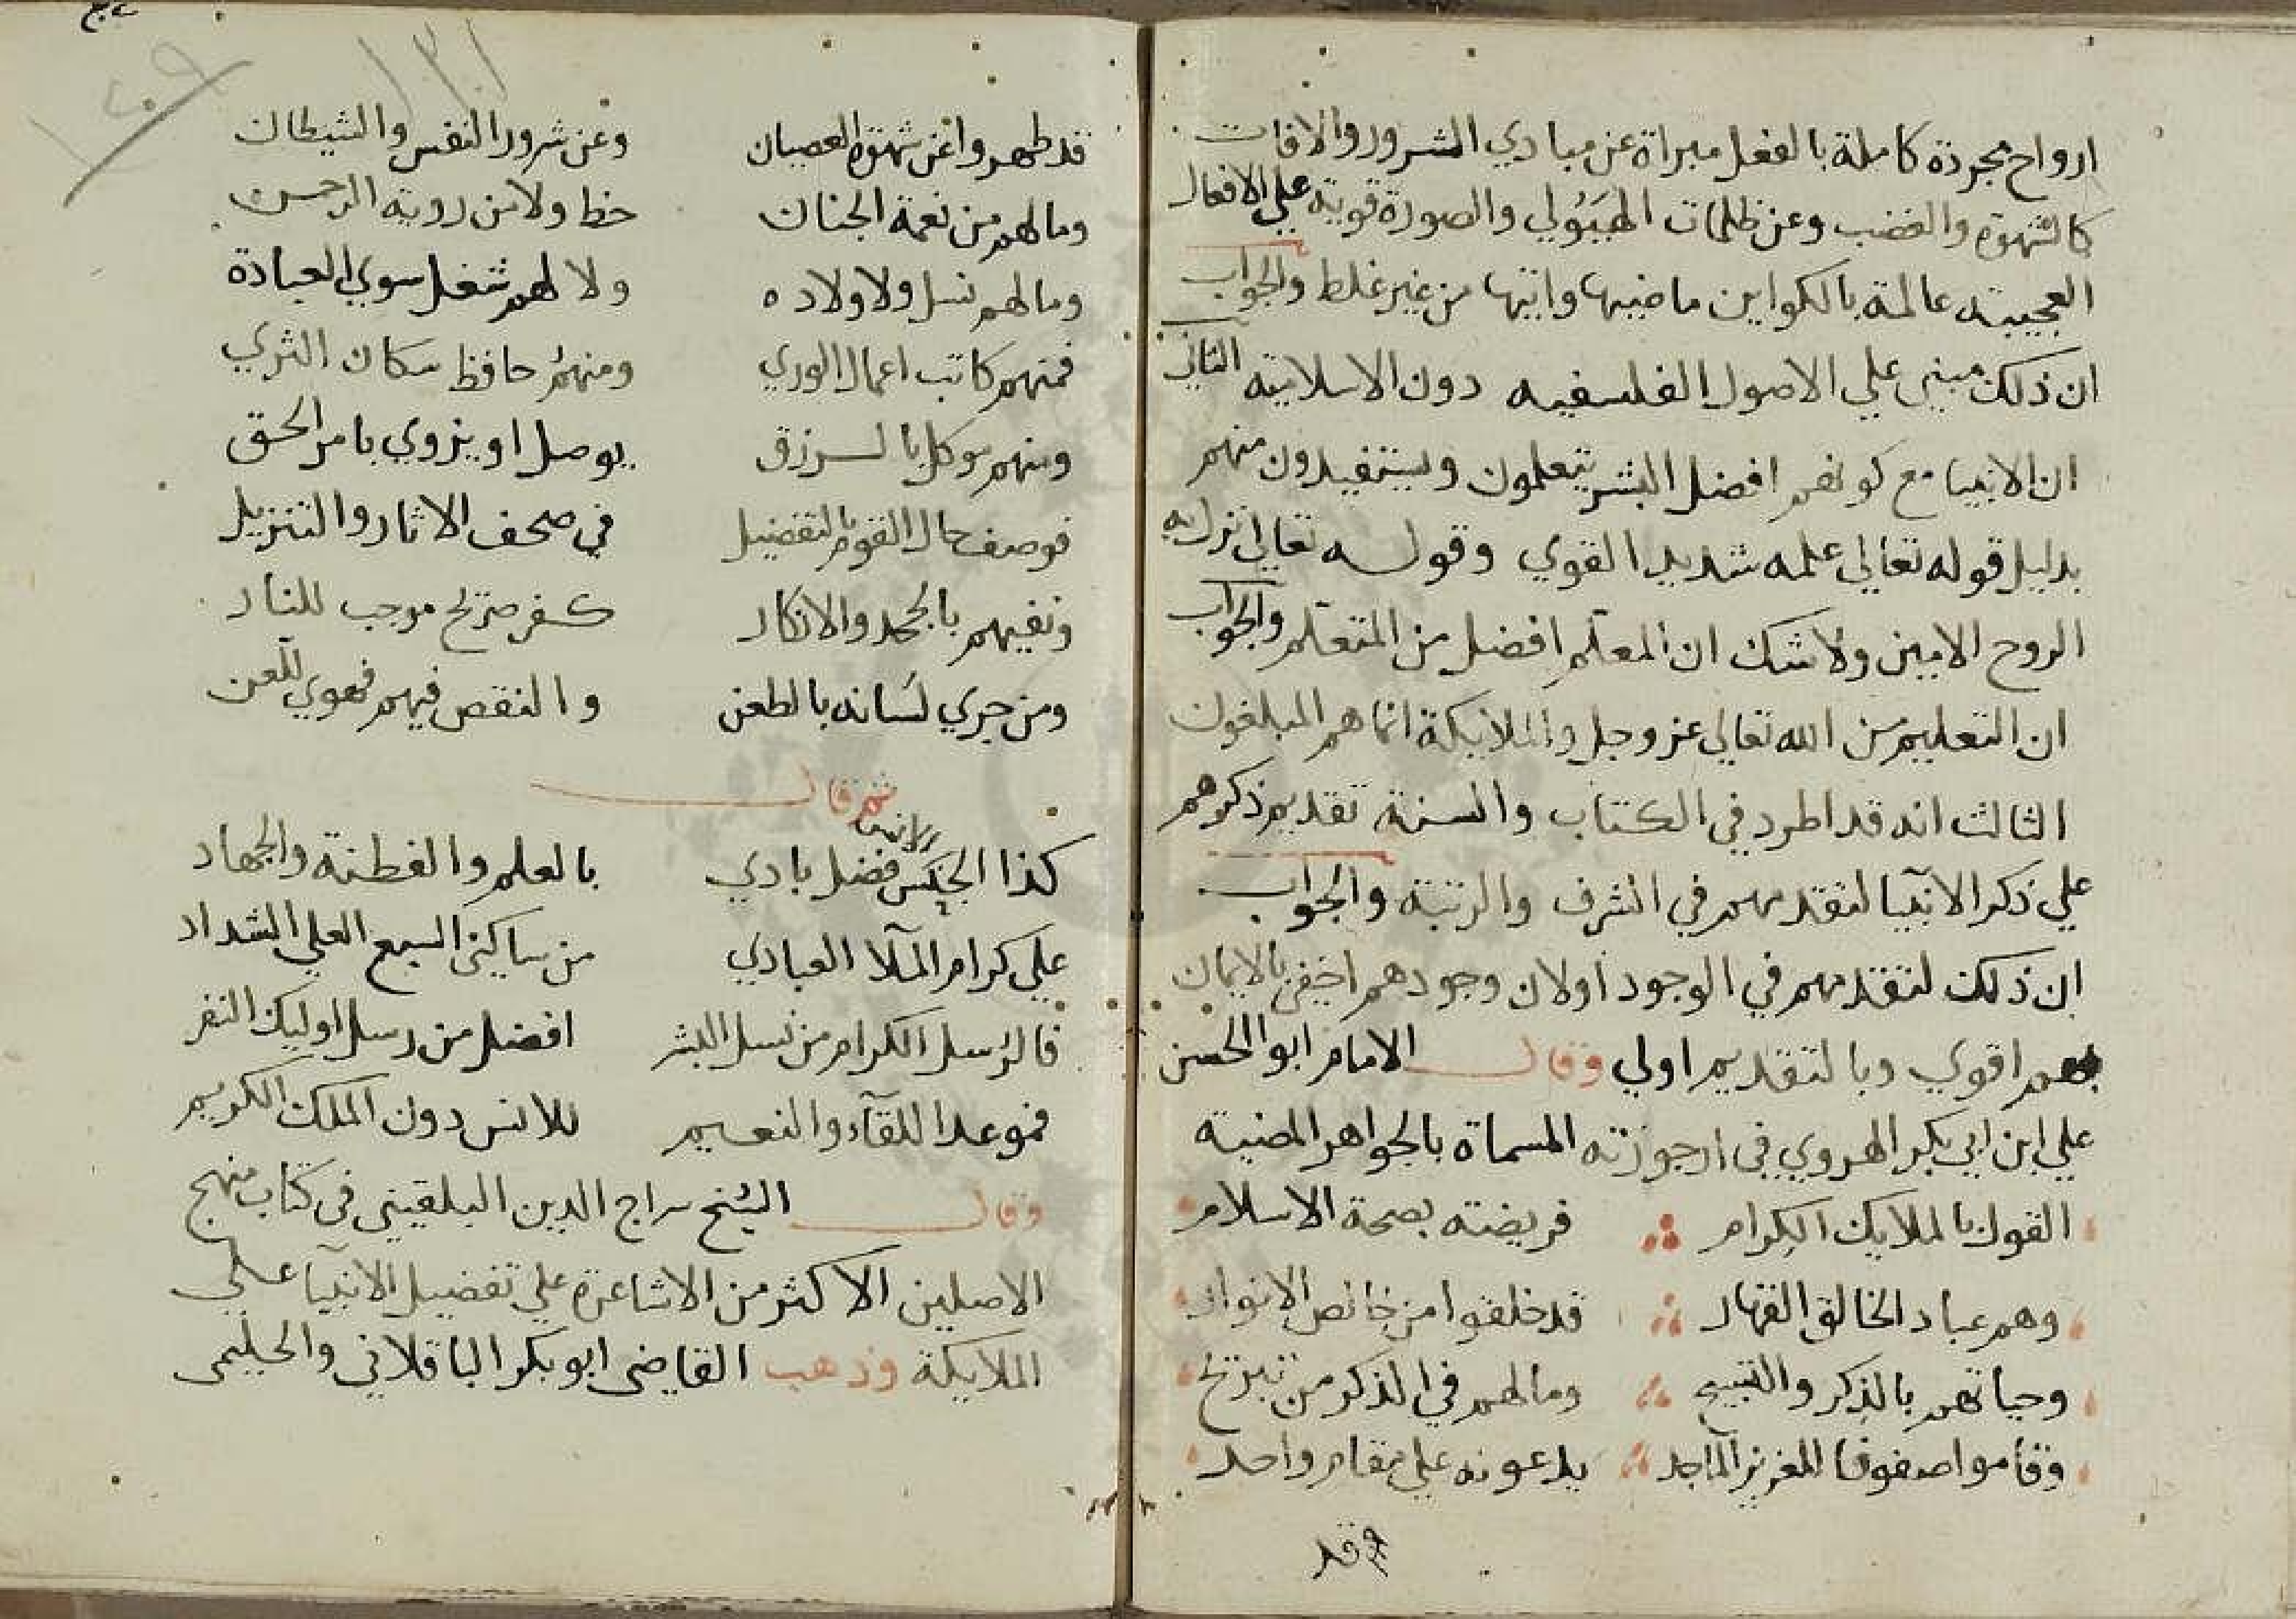 ارواح مجردة كاملة بالفعل مبراة عن مبادي الشرور والافات
كالشهوة والغضب وعن ظلمات الهيَوُلي والصورة قوية علي الافعال
العجيبة عالمة بالكواين ماضيها واتيها من غير غلط والجواب
ان ذلك مبني علي الاصول الفلسفيه دون الاسلامية الثاني
ان الانبيا مع كونهم افضل البشر يتعلمون ويستفيدون منهم
بدليل قوله تعالي علمه شديد القوي وقوله تعالي انزل به
الروح الامين ولا شك ان المعلّم افضل من المتعلّم والجواب
ان التعليم من الله تعالي عز وجل والملايكة انما هم المبلغون
الثالث انه قد اطرد في الكتاب والسنة تقديم ذكرهم
علي ذكر الانبيا لتقدمهم في الشرف والرتبة والجواب
ان ذلك لتقدمهم في الوجود او لان وجودهم اخفي بالايمان
بهم اقوي وبالتقديم اولي وقال الامام ابو الحسن
علي ابن ابي بكر الهروي في ارجوزته المسماة بالجواهر المضية
القول بالملايك الكرام فريضته بصحة الاسلام
وهم عباد الخالق القهار قد خلقوا من خالص الانوار
وحياتهم بالذكر والتسبيح ومالهم في الذكر من تبريح
وقاموا صفوفا للعزيز الماجد يدعونه علي مقام واحد
قد
١٣١
قد طهروا عن شهوة العصيان وعن شرور النفس والشيطان
ومالهم من نعمة الجنان حظ ولا من روية الرحمن
ومالهم نسل ولا ولاده ولا لهم شغل سوي العبادة
فمنهم كاتب اعمال الوري ومنهمُ حافظ سكان الثري
ومنهم موكل بالرزق يوصل او يزوي بامر الحق
فوصف حال القوم بالتفضيل في صحف الاثار والتنزيل
ونفيهم بالجحد والانكار كفر صريح موجب للنار
ومن جري لسَانه بالطعن والنقص فيهم فهوي للّعن
ثم قال
كذا الجنس الانس فضل بادي بالعلم والفطنة والجهاد
علي كرام الملا العبادي من ساكني السبع العلي الشداد
فالرُسل الكرام من نسل البشر افضل من رسل اوليك النفر
فموعد اللقآء والنعيم للانس دون الملك الكريم
وقال الشيخ سراج الدين البلقيني في كتاب منهج
الاصلين الاكثر من الاشاعرة علي تفضيل الانبيا علي
الملايكة وذهب القاضي ابو بكر الباقلاني والحليمي